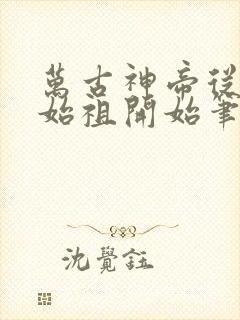 萬古神帝從
始祖開始筆
沈覺鈺